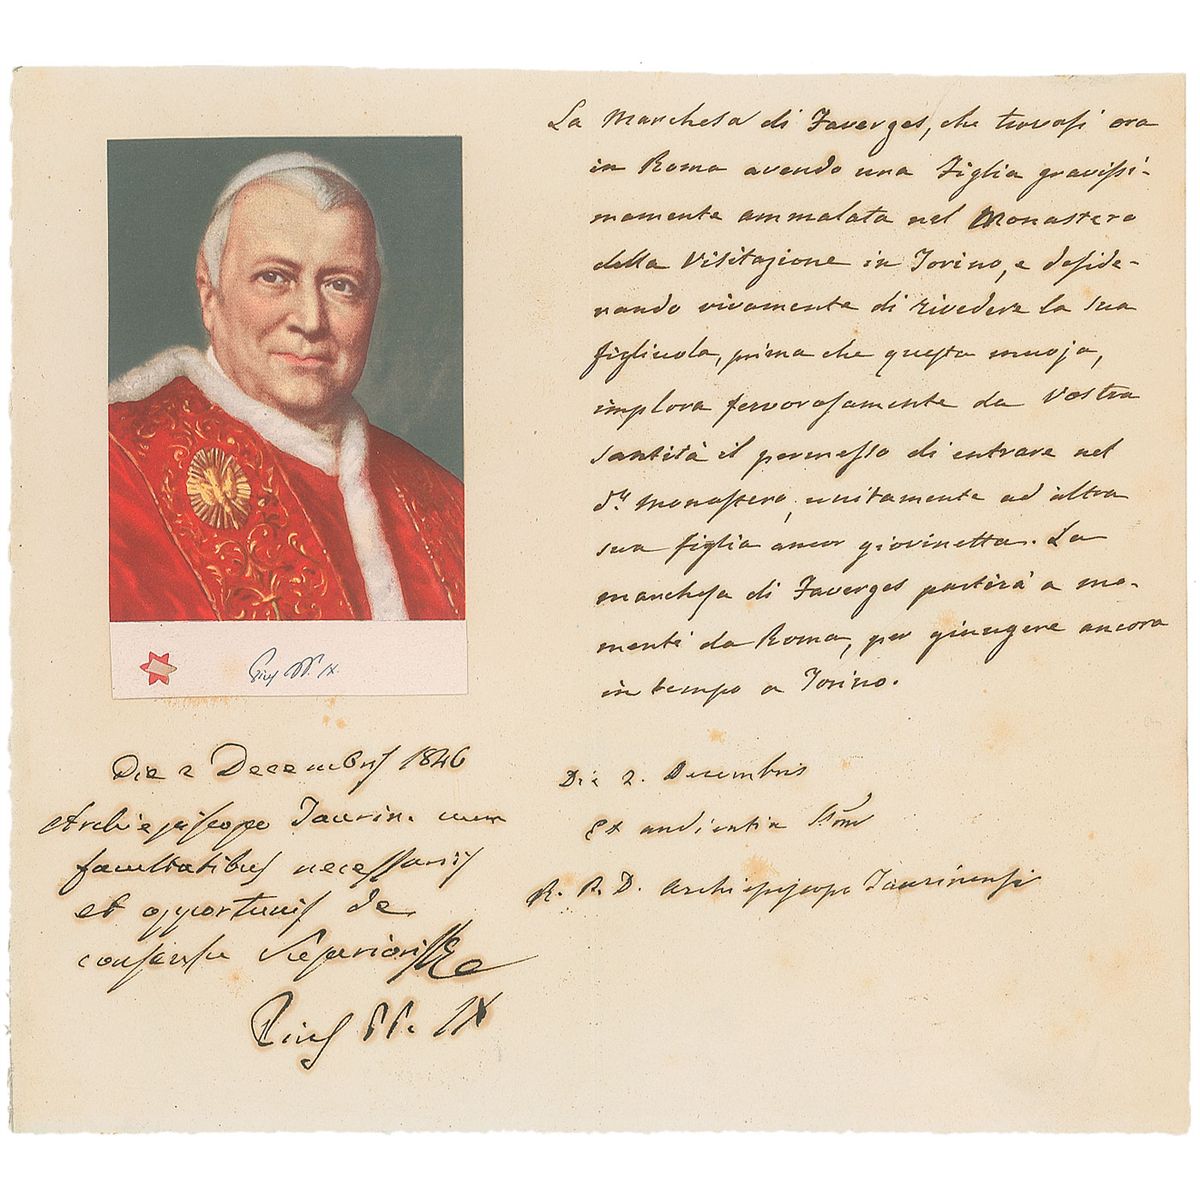 Pius PP. IX.
Die 2 Decembris 1846
Archiepiscopo Taurin. cum
facultatibus necessariis
et opportunis de
consensu Superiorissae
Pius PP. IX
La Marchesa di Faverges, che trovasi ora
in Roma avendo una Figlia gravissi-
mamente ammalata nel Monastero
della Visitazione in Torino, e deside-
rando vivamente di rivedere la sua
figliuola, prima che questa muoja,
implora fervorosamente da Vostra
Santità il permesso di entrare nel
d.º monastero, unitamente ad altra
sua figlia ancor giovinetta. La
marchesa di Faverges partirà a mo-
menti da Roma, per giungere ancora
in tempo a Torino.
Die 2. Decembris
Ex audientia SSmi
R. P. D. Archiepiscopo Taurinensi